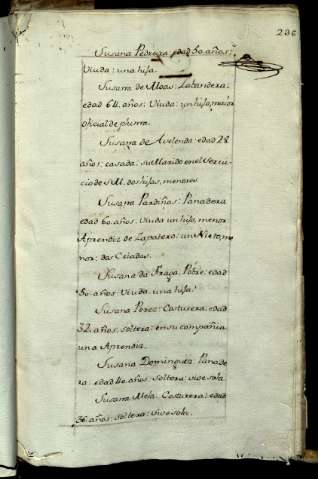 236
Susana Pedraza edad 50 años:
Viuda: una hija.
Susana de Moas: Labandera:
edad 64. años: Viuda: un hijo, maior
oficial de pluma.
Susana de Avelenda: edad 28
años: casada: su Marido en el Servi-
cio de S.M. dos hijas, menores.
Susana Pardiñas: Panadera
edad 60. años: Viuda un hijo, menor
Aprendiz de Zapatero: un Nieto, me-
nor: dos Criadas.
Susana da Fraga Pobre: edad
50 años: Viuda: una hija.
Susana Perez: Costurera: edad
32. años: soltera: en su compañia
una Aprendiz.
Susana Dominguez: Panade-
ra: edad 40. años: soltera: vive sola.
Susana Mela: Costurera: edad
36. años: soltera: vive sola.